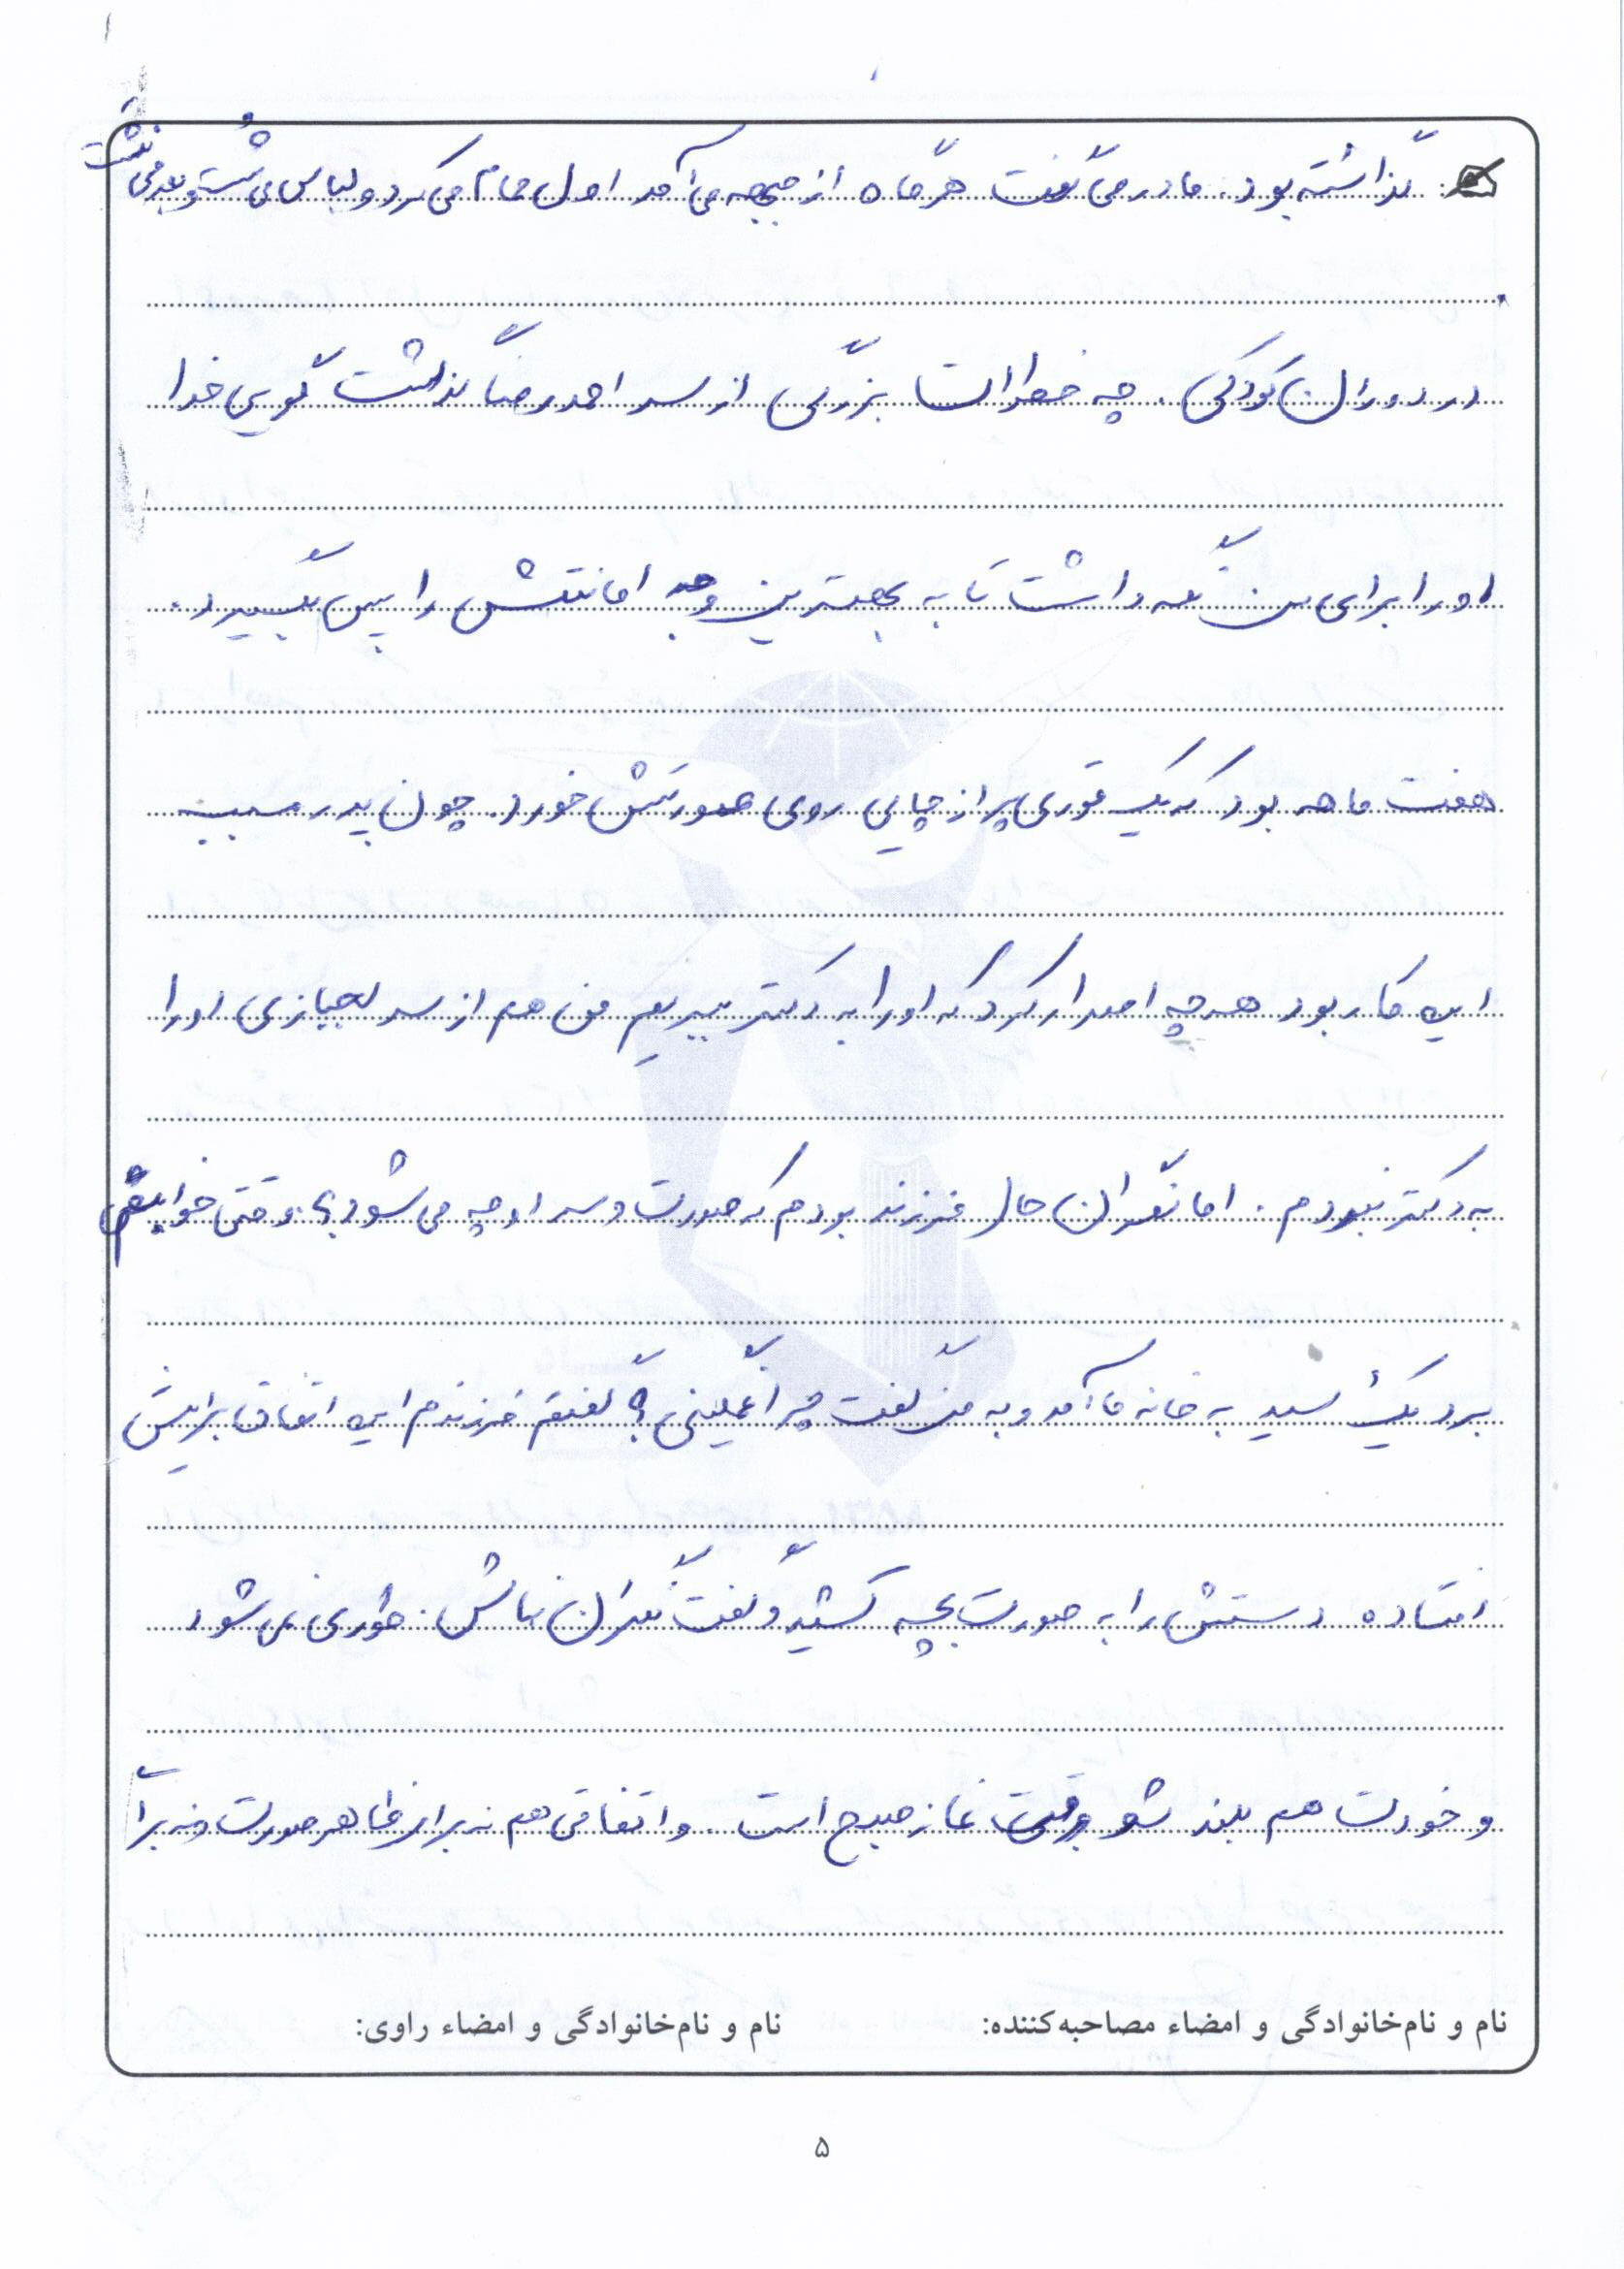 گذاشته بود. مادر می گفت هر ماه از جبهه می آمد اول حمام می کرد و لباس می شست و بعد می نشست
در دوران کودکی، چه خطرات بزرگی از سر احمدرضا گذشت گویی خدا
او را برای من نگه داشت تا به بهترین وجه امانتش را پس بگیرد.
هفت ماهه بود که یک قوری پر از چایی روی صورتش خورد. چون پدر مسبب
این کار بود هر چه اصرار کرد که او را به دکتر ببریم من هم از سر لجبازی او را
به دکتر نبردم. اما نگران حال فرزند بودم که صورت و سر او چه می شود؟ وقتی خوابم
برد یک سید به خانه ما آمد و به من گفت چرا غمگینی؟ گفتم فرزندم این اتفاق برایش
افتاده دستش را به صورت بچه کشید و گفت نگران نباش. طوری نمی شود
و خودت هم بلند شو وقت نماز صبح است. و اتفاقی هم نه برای ظاهر صورت و نه برا
نام و نام‌خانوادگی و امضاء مصاحبه‌کننده: نام و نام‌خانوادگی و امضاء راوی:
۵